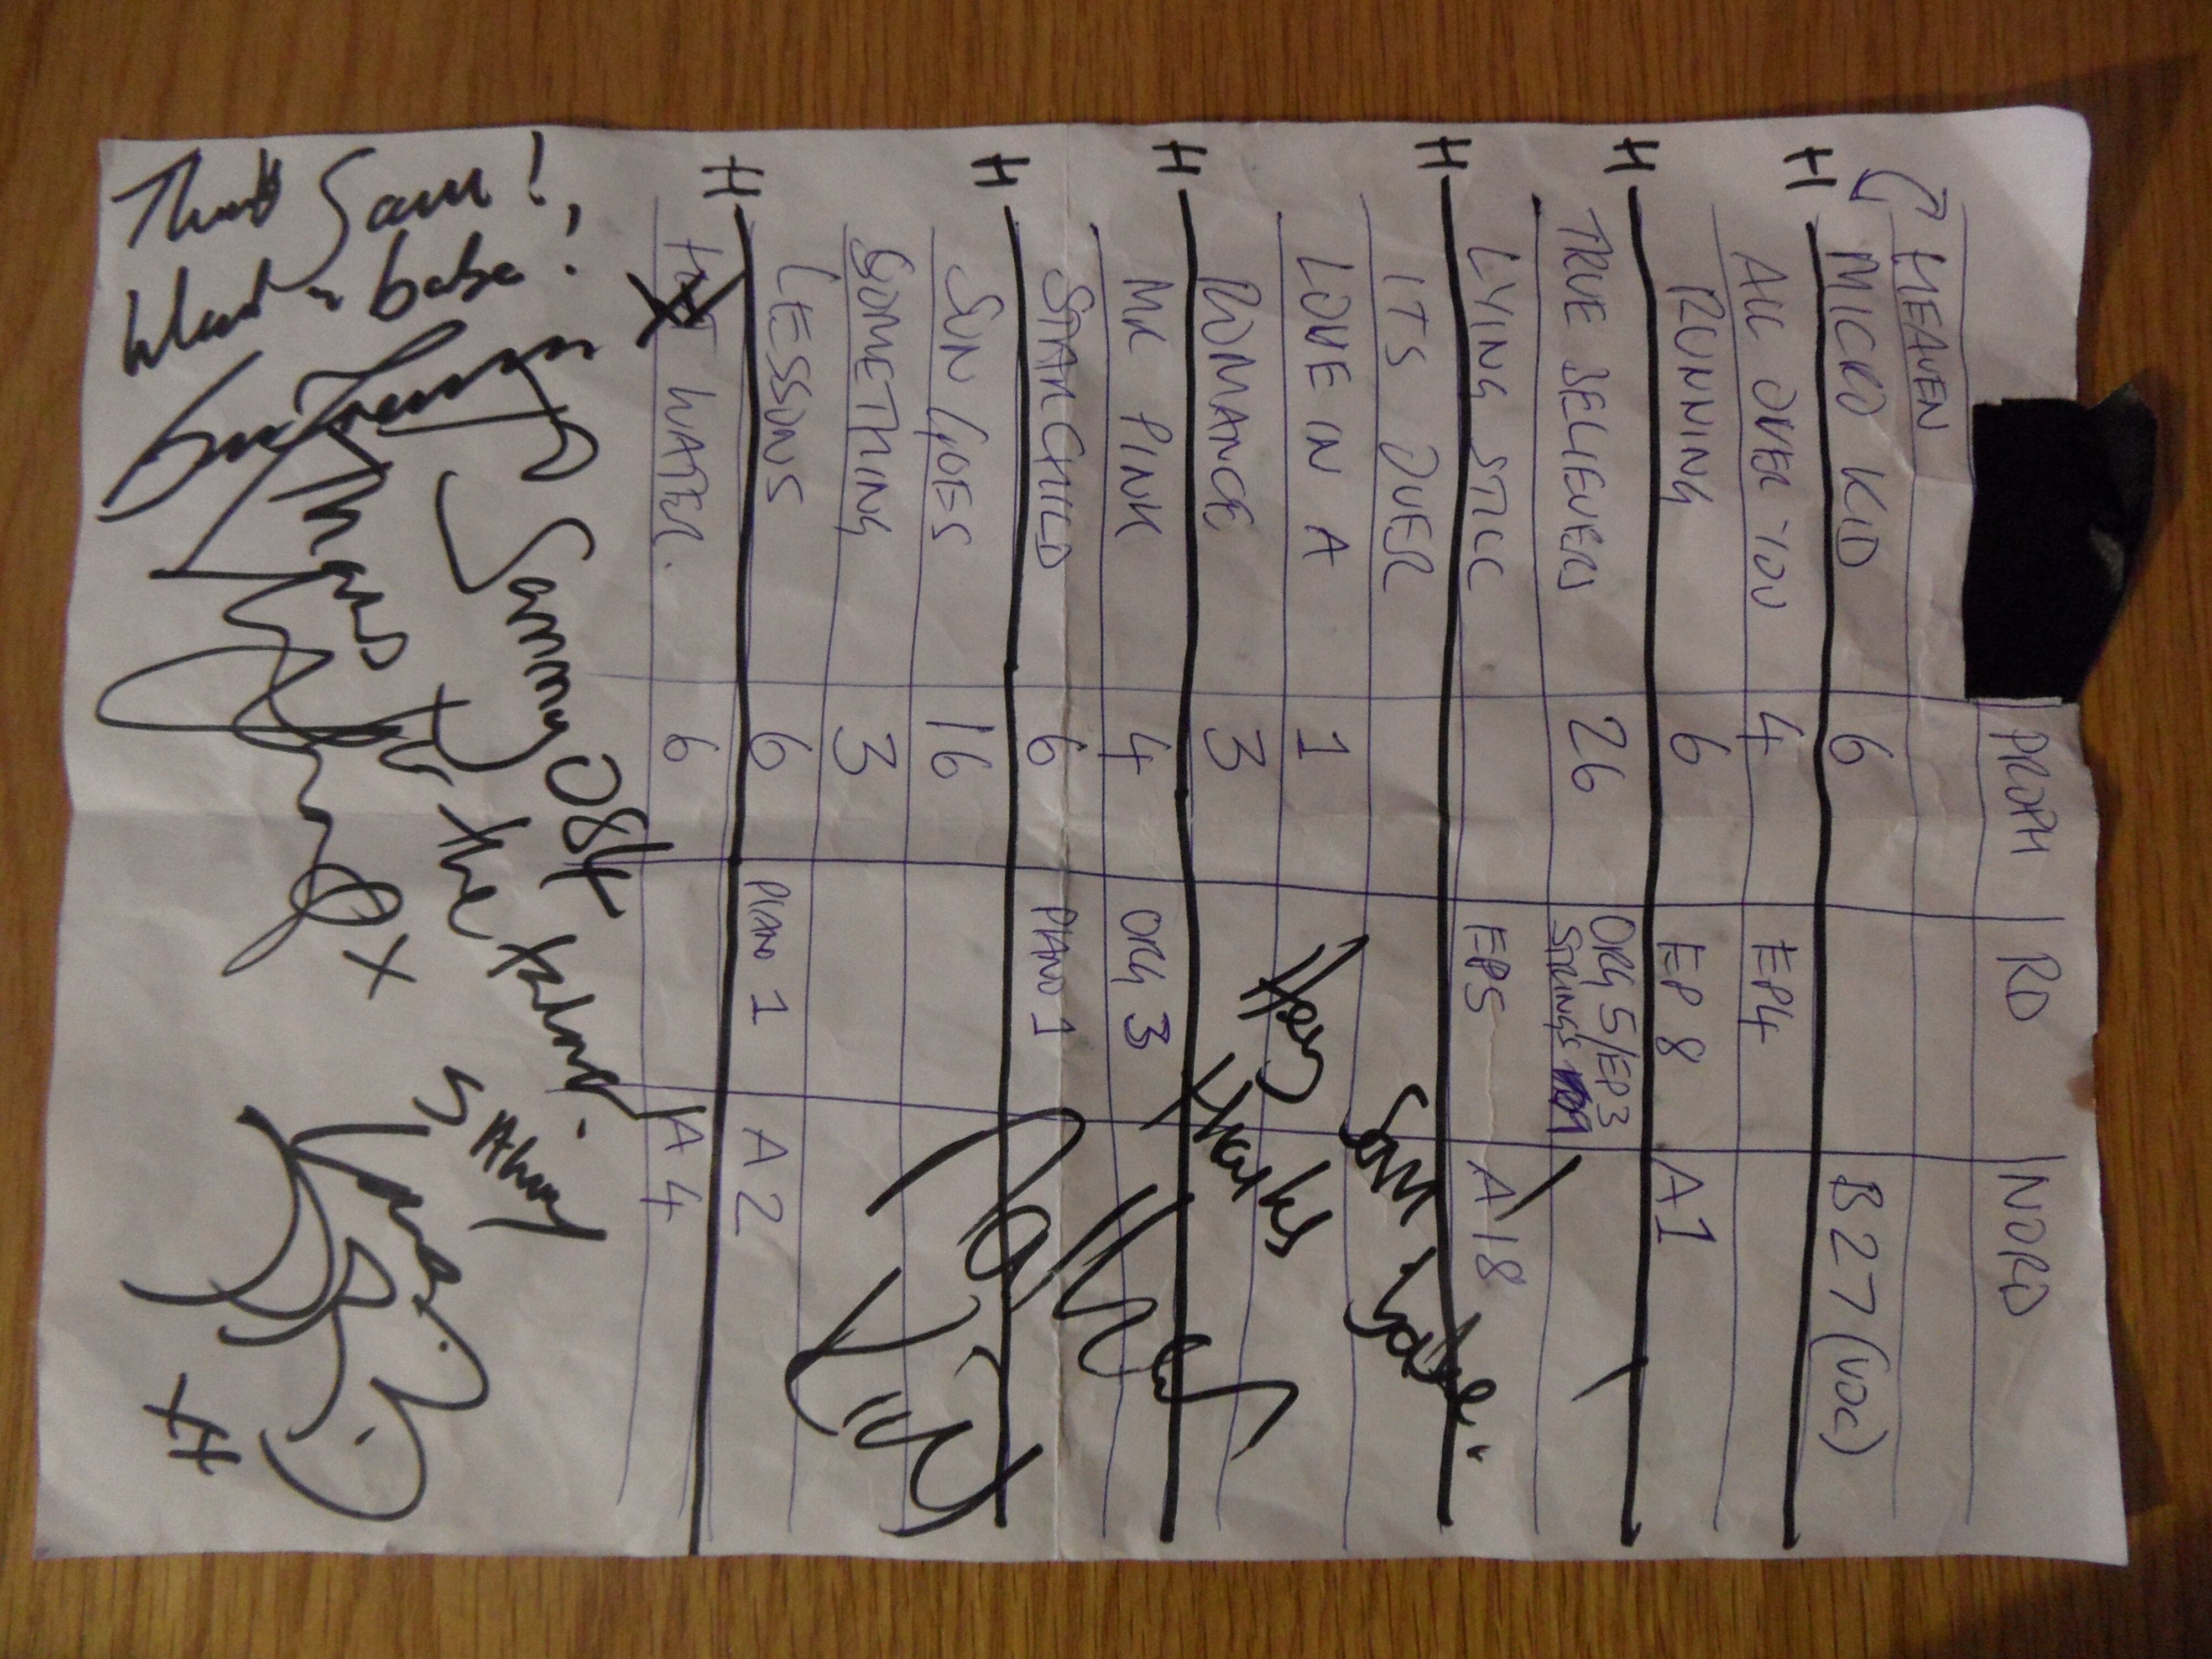 PROPH RD NORD
HEAVEN
H MICRO KID 6 B27 (VOC)
ALL OVER YOU 4 EP4
H RUNNING 6 EP 8 A1
TRUE BELIEVERS 26 ORG 5/EP3
STRINGS
H LYING STILL EP5 A18
ITS OVER
LOVE IN A 1
H ROMANCE 3
MR PINK 4 ORG 3
H STARCHILD 6 PIANO 1
SUN GOES 16
SOMETHING 3
H LESSONS 6 PIANO 1 A2
HOT WATER. 6 A4
Hey
Sam
Thanks
babe
To Sammy 084
Thanks for the
Sam!,
What a babe!
x